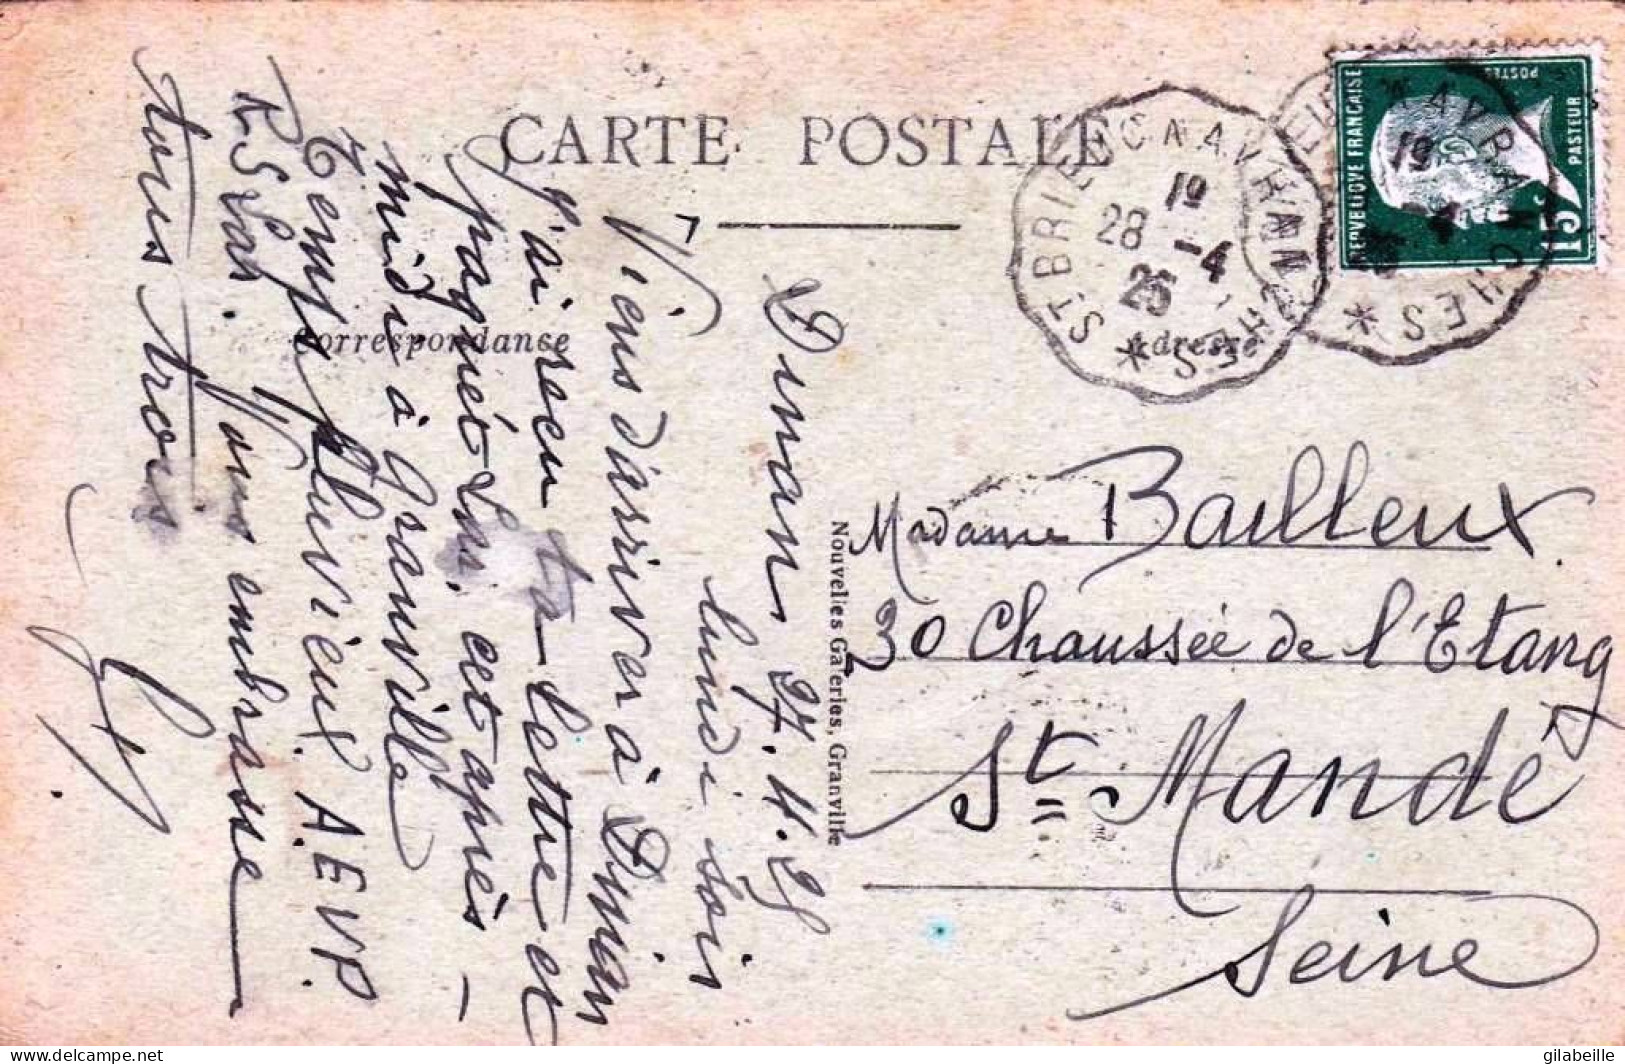 CARTE POSTALE
Correspondance
Adresse
Dinan 27.4.25
lundi soir
Viens d'arriver à Dinan
J'ai reçu ta lettre et
paquet hier. cet après-
midi à Granville
Temps pluvieux. A.E.V.P.
R.S. Las. Vous embrasse
tous trois
Nouvelles Galeries, Granville
Madame Bailleux
30 Chaussée de l'Etang
St Mandé
Seine
ST BRIEUC À AVRANCHES *
19
28 -4
25
REPUBLIQUE FRANÇAISE
POSTES
PASTEUR
15c
AVRANCHES *
19
-4
https://www.delcampe.net
gilabeille